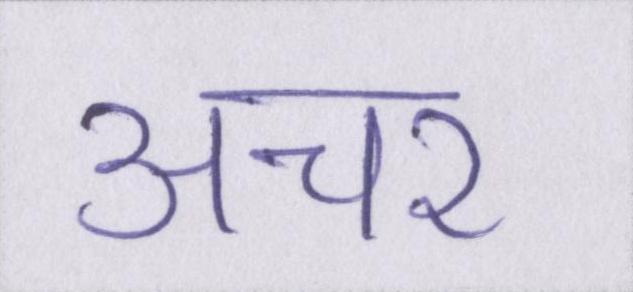 अचर